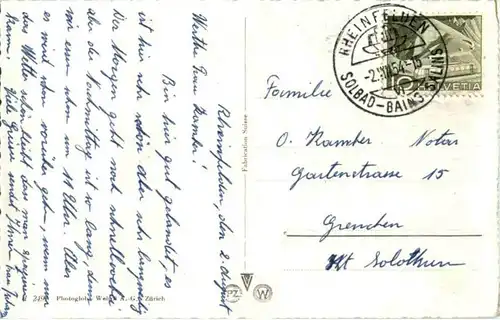 Rheinfelden, den 2. August
Werte Frau Kamber!
Bin hier gut gelandet, es
ist hier sehr schön aber sehr langweilig
Der Morgen geht noch schnell vorbei
aber der Nachmittag ist so lang, denn
wir essen schon um 11 Uhr. Aber
es wird schon vorüber gehen, wenn nur
das Wetter schön bleibt das man spazieren
kann. Viele Grüsse sendet Ihnen Frau
Photoglob Wehrli A.-G., Zürich
Fabrication Suisse
PZ
W
RHEINFELDEN
SOLBAD-BAINS SALINS
HELVETIA
Familie
O. Kamber Notar
Gartenstrasse 15
Grenchen
Kt Solothurn